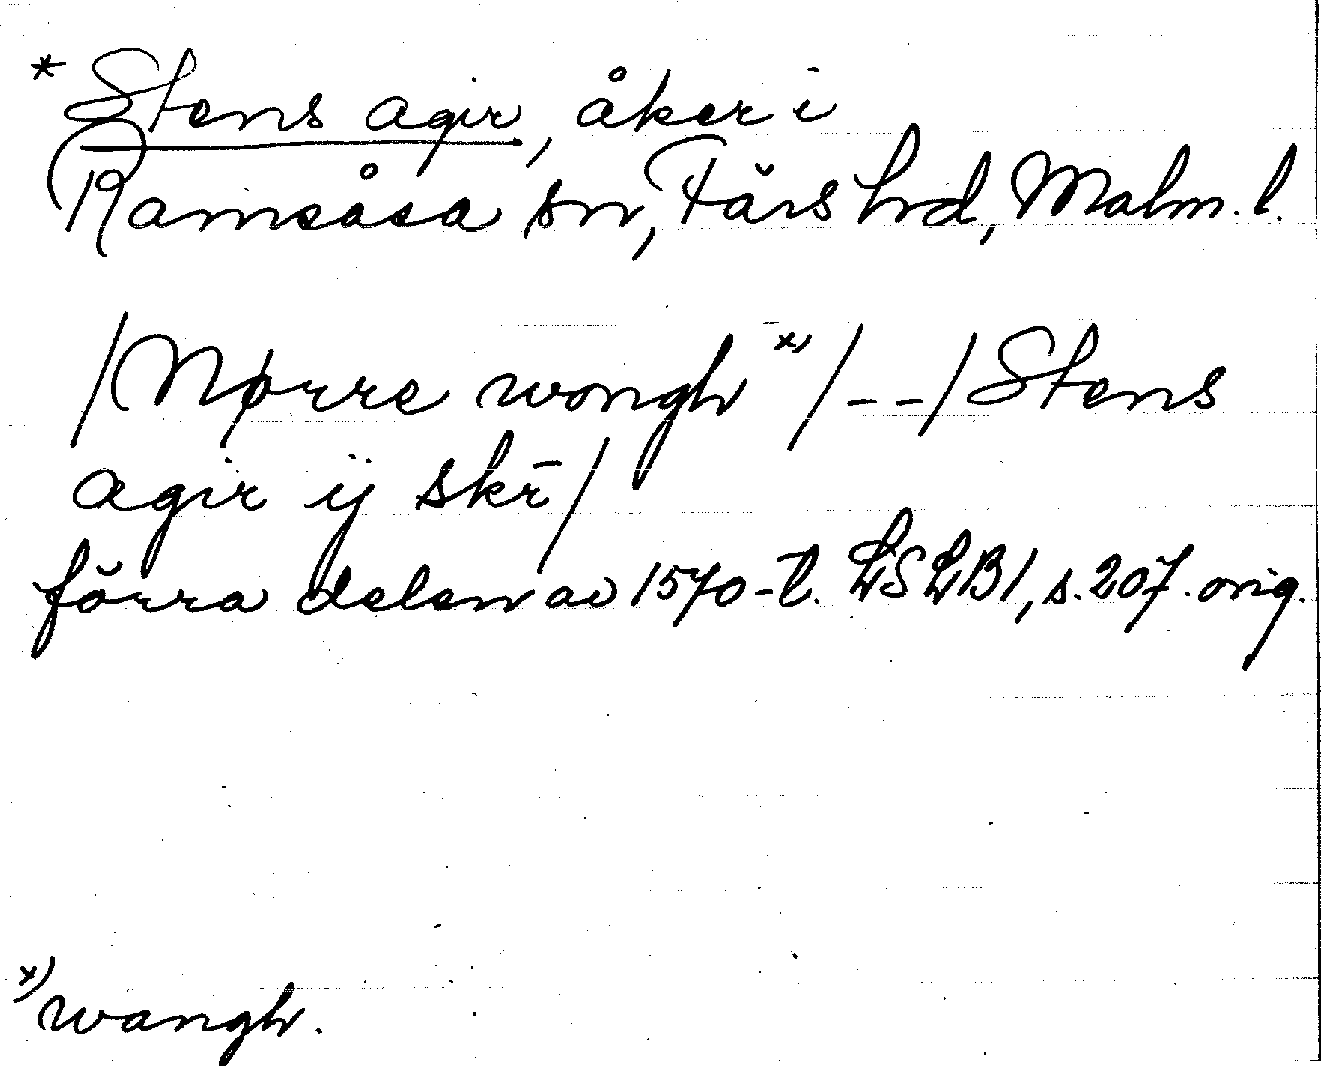 * Stens agir, åker i
Ramsåsa sn, Färs hrd, Malm. l.
/Nørre wongh x)/ -- /Stens
agir ij skr̄/
förra delen av 1570-t. LSLB1, s. 207. orig.
x) wangh.